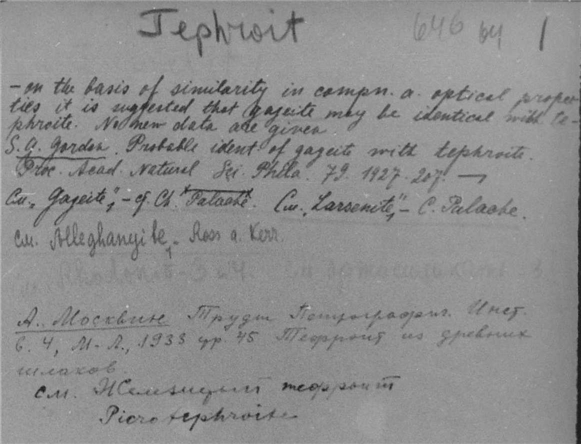 Tephroit 646 64 1
- on the basis of similarity in compn. a. optical proper-
ties it is suggested that gageite may be identical with te-
phroite. No new data are given.
S. G. Gordon. Probable ident of gageite with tephroite.
Proc. Acad. Natural Sci. Phila. 79. 1927. 207. —
См. „Gageite", - cf. Ch. Palache. См. „Larsenite", - C. Palache.
см. Alleghanyite, - Ross a. Kerr.
А. Москвин Труды Петрографич. Инст.
в. 4, М-Л., 1933 стр. 45 Тефроит из древних
шлаков.
см. Железистый тефроит
Picrotephroite